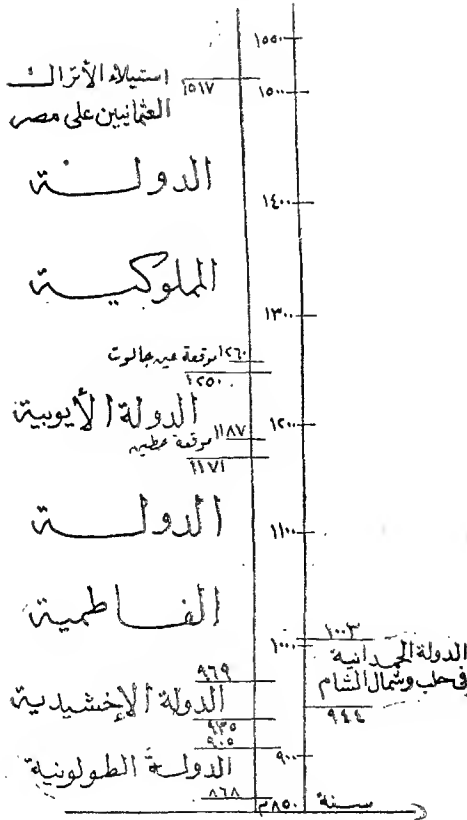 ١٥٥٠
استيلاء الأتراك
١٥١٧
١٥٠٠
العثمانيين على مصر
الدولة
١٤٠٠
المملوكية
١٣٠٠
١٢٦٠ موقعة عين جالوت
١٢٥٠
الدولة الأيوبية
١٢٠٠
١١٨٧ موقعة حطين
١١٧١
الدولة
١١٠٠
الفاطمية
١٠٠٣
١٠٠٠
الدولة الحمدانية
فى حلب وشمال الشام
٩٤٤
٩٦٩
الدولة الإخشيدية
٩٣٥
٩٠٥
٩٠٠
الدولة الطولونية
٨٦٨
٨٥٠م
سنة